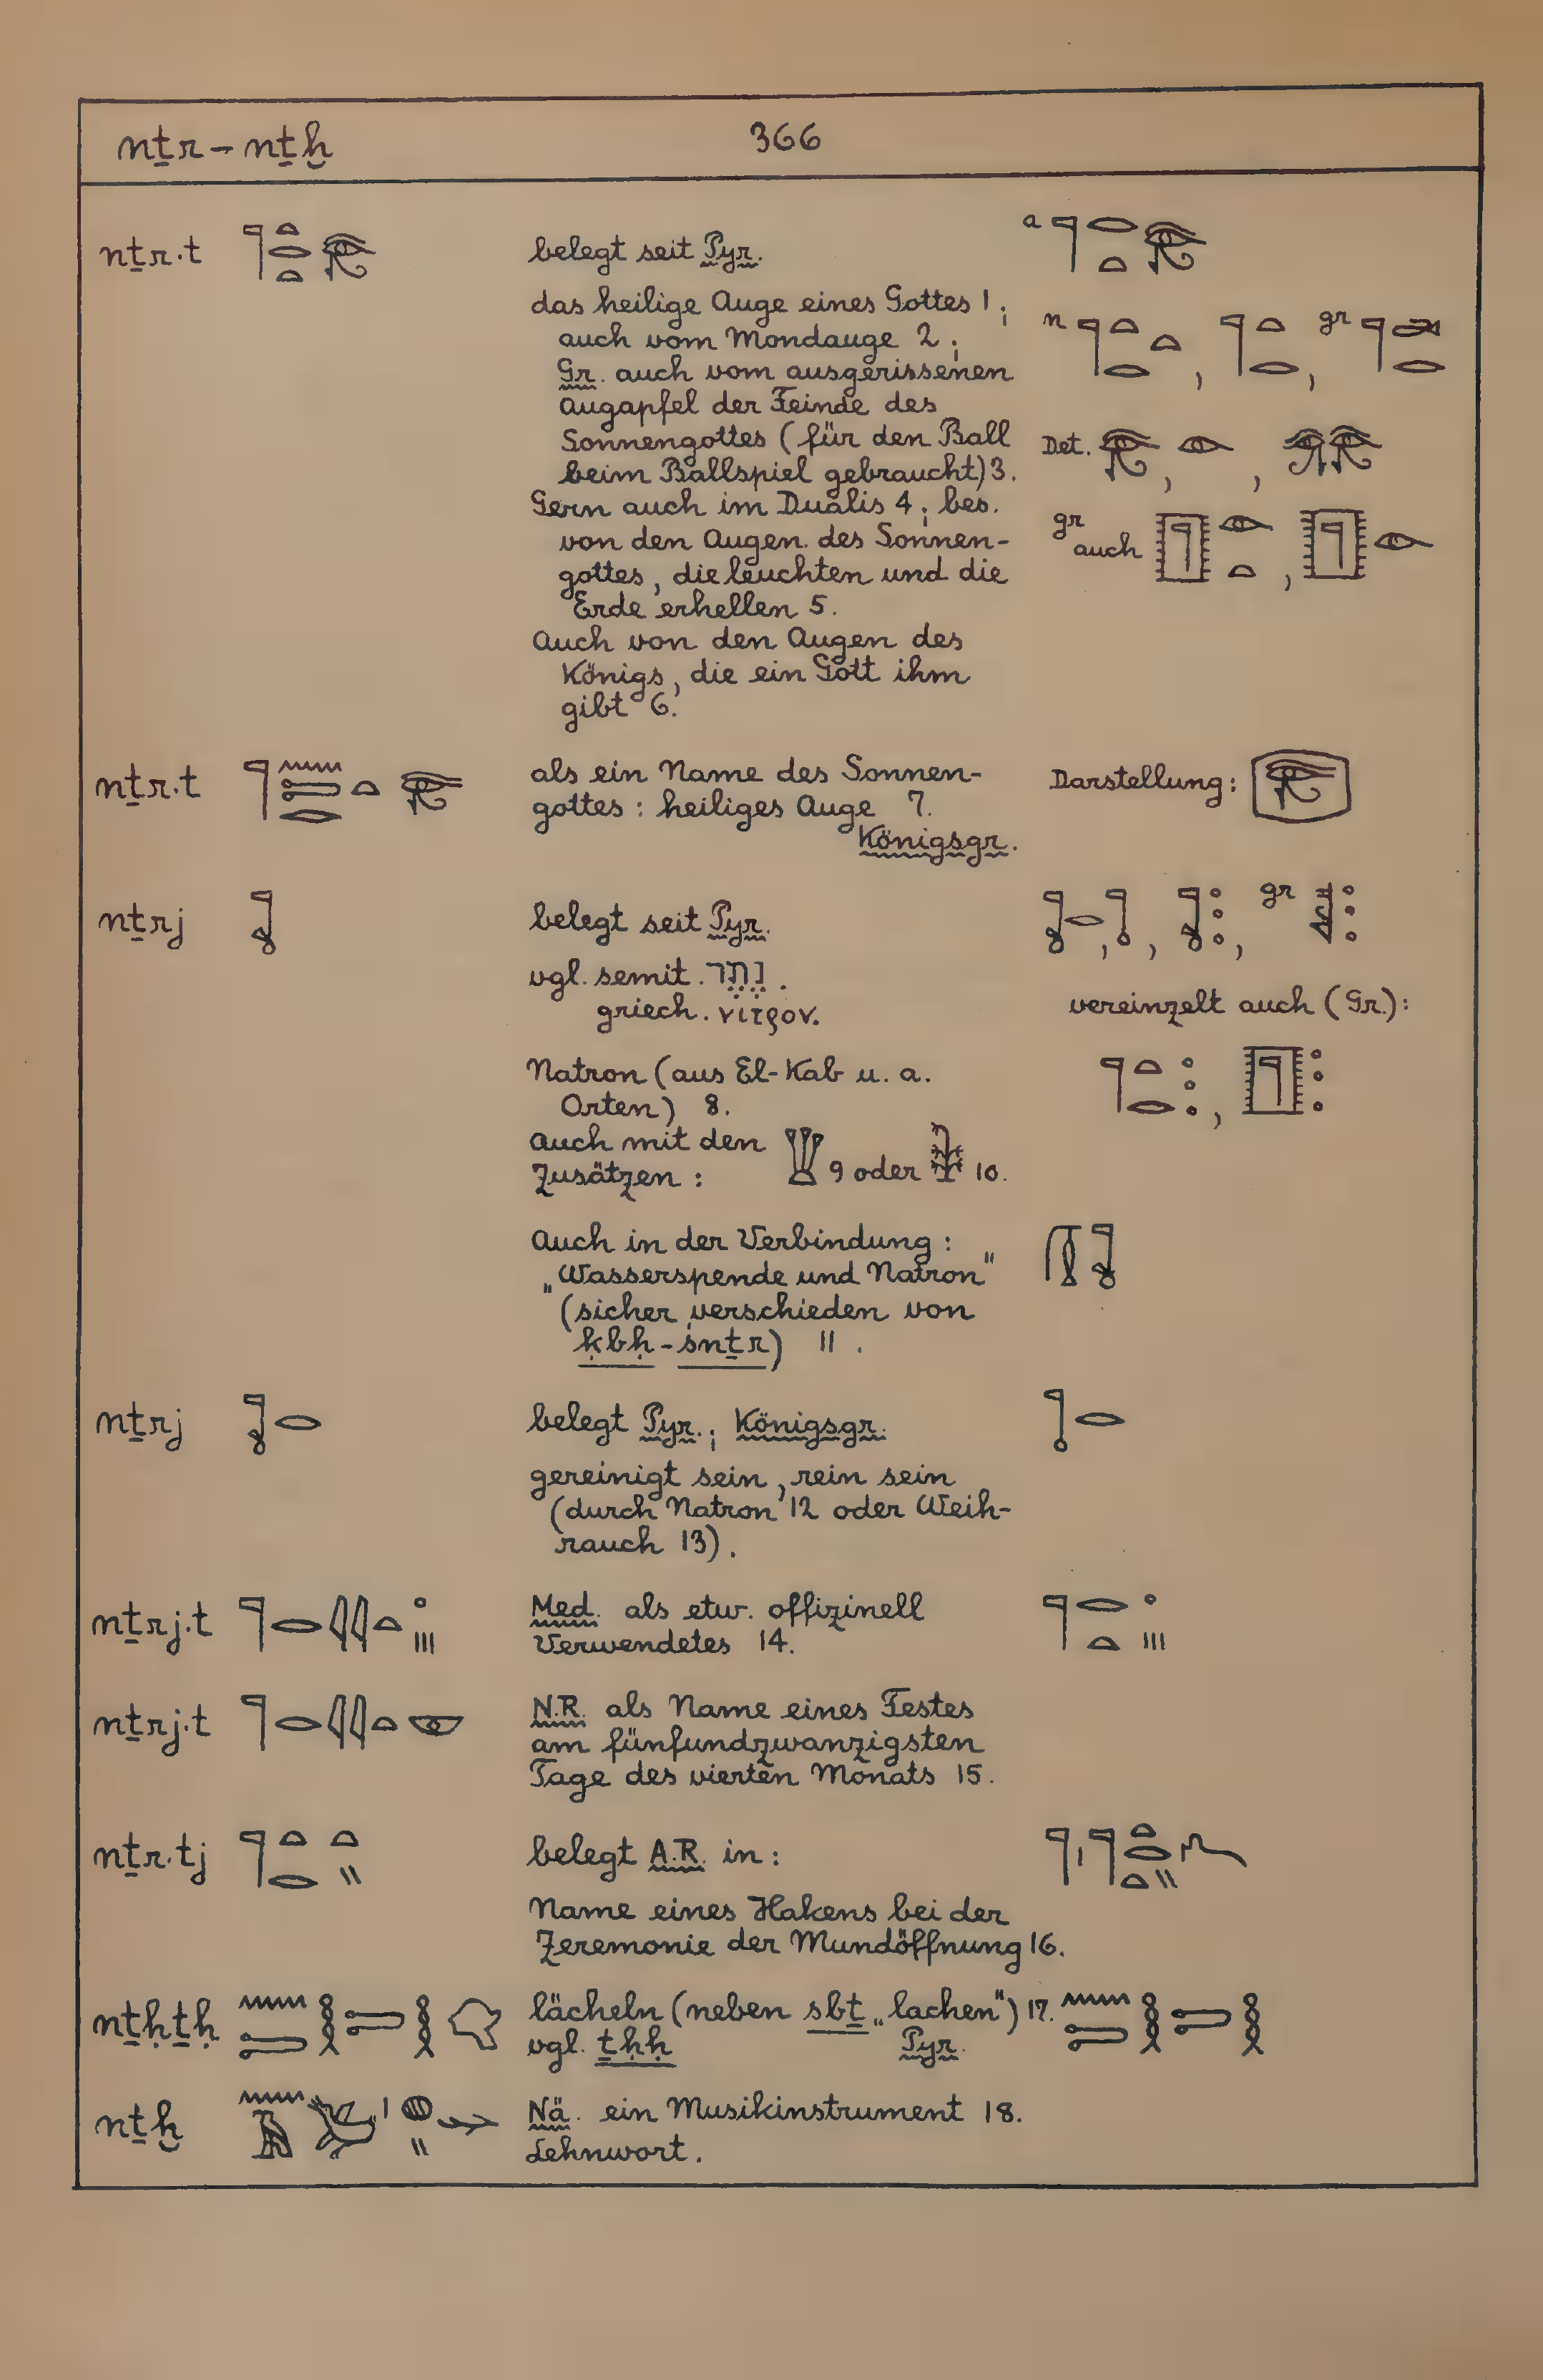 nṯr – nṯḫ
366
nṯr.t 𓊹𓏏𓂋𓏏𓂀 belegt seit Pyr. a 𓊹𓂋𓏏𓂀
das heilige Auge eines Gottes 1;
auch vom Mondauge 2; n 𓊹𓏏𓂋𓏏, 𓊹𓏏𓂋, gr
Gr. auch vom ausgerissenen
Augapfel der Feinde des
Sonnengottes (für den Ball Det. 𓂀, 𓁹, 𓂀
beim Ballspiel gebraucht) 3.
Gern auch im Dualis 4; bes. gr
von den Augen des Sonnen- auch
gottes, die leuchten und die
Erde erhellen 5.
Auch von den Augen des
Königs, die ein Gott ihm
gibt 6.
nṯr.t 𓊹𓈖𓍿𓂋𓏏𓂀 als ein Name des Sonnen- Darstellung: 𓂀
gottes: heiliges Auge 7.
Königsgr.
nṯrj belegt seit Pyr. gr
vgl. semit. נתר.
griech. νιτρον. vereinzelt auch (Gr.):
Natron (aus El-Kab u. a.
Orten) 8.
auch mit den
Zusätzen: 𓇗 9 oder 10.
Auch in der Verbindung:
„Wasserspende und Natron"
(sicher verschieden von
ḳbḥ - śnṯr) 11.
nṯrj belegt Pyr.; Königsgr.
gereinigt sein, rein sein
(durch Natron 12 oder Weih-
rauch 13).
nṯrj.t 𓊹𓂋𓇌𓏏𓈒𓏥 Med. als etw. offizinell 𓊹𓂋𓏏𓈒𓏥
Verwendetes 14.
nṯrj.t 𓊹𓂋𓇌𓏏𓎱 N.R. als Name eines Festes
am fünfundzwanzigsten
Tage des vierten Monats 15.
nṯr.tj 𓊹𓏏𓂋𓏏𓏭 belegt A.R. in: 𓊹𓏤𓊹𓏏𓂋𓏏𓏭
Name eines Hakens bei der
Zeremonie der Mundöffnung 16.
nṯḥṯḥ 𓈖𓍿𓎛𓍿𓎛 lächeln (neben sbṯ „lachen") 17. 𓈖𓍿𓎛𓍿𓎛
vgl. ṯḥḥ Pyr.
nṯḫ Nä. ein Musikinstrument 18.
Lehnwort.